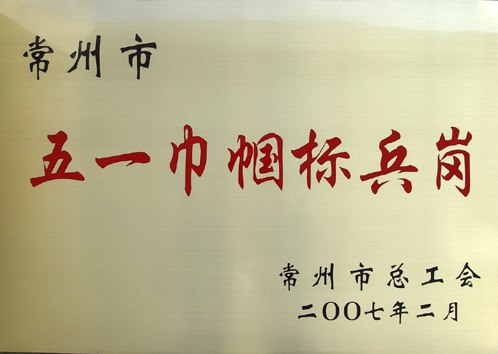 常州市
五一巾帼标兵岗
常州市总工会
二OO七年二月